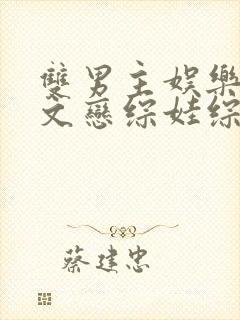 雙男主娛樂
文戀綜娃綜
蔡建忠